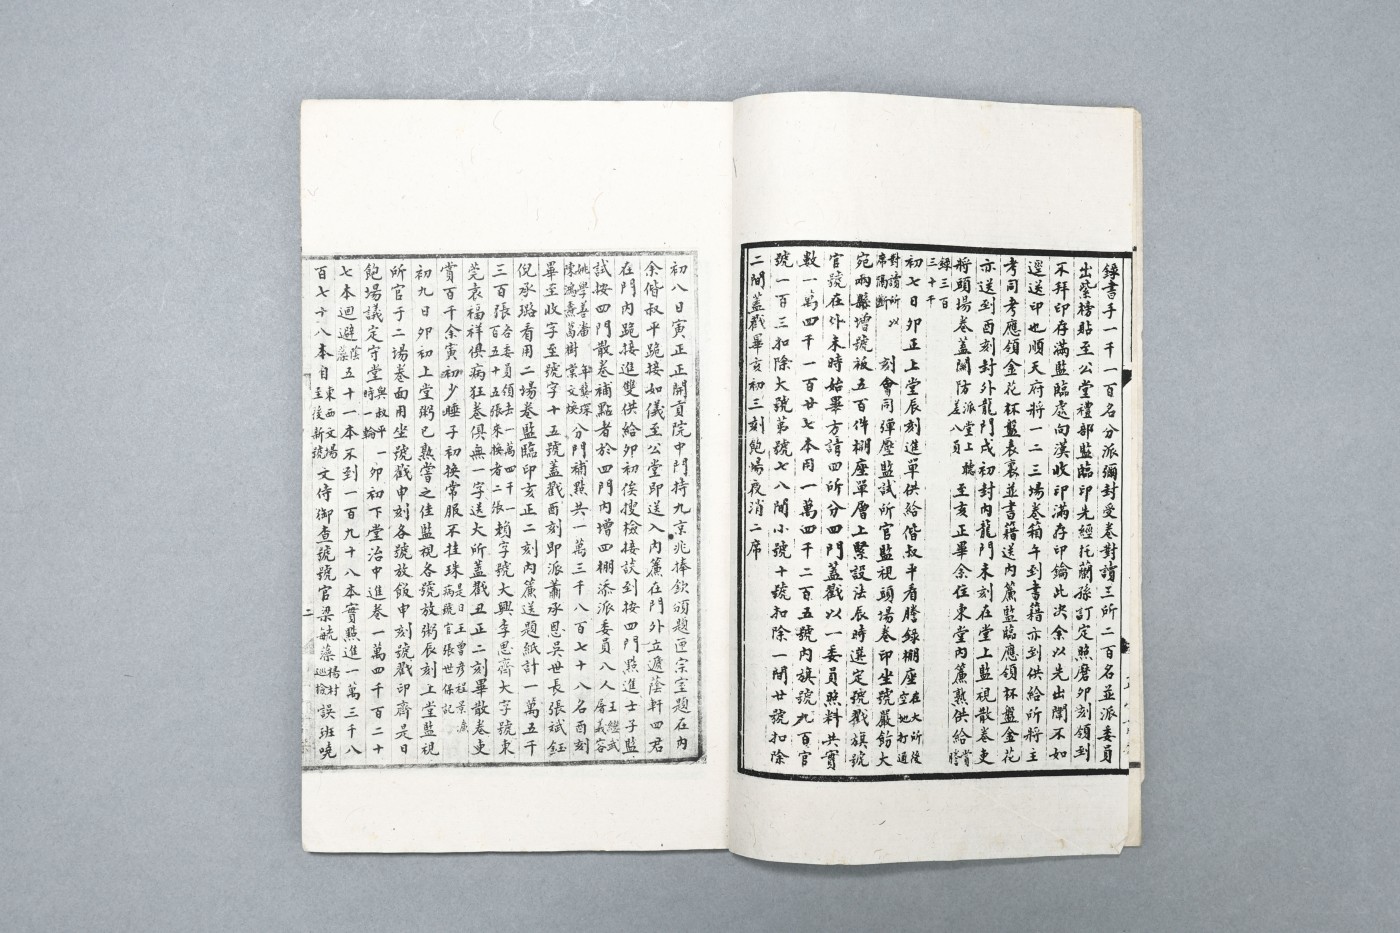 錄書手一千一百名分派彌封受卷對讀三所二百名並派委員
出紫榜貼至公堂禮部監臨印先經托蘭孫訂定照磨卯刻領到
不拜印存滿監臨處向漢收印滿存印鑰此次余以先出闈不如
逕送印也順天府將一二三場卷箱午到書籍亦到供給所將主
考同考應領金花杯盤表裏並書籍送內簾監臨應領杯盤金花
亦送到酉刻封外龍門戌初封內龍門未刻在堂上監視散卷吏
將頭場卷蓋關防派堂上聽差八員至亥正畢余住東堂內簾熟供給賞謄
錄三百
三十千
初七日卯正上堂辰刻進單供給偕叔平看謄錄棚座在大所後空地打通
對讀所以
席隔斷
刻會同彈壓監試所官監視頭場卷印坐號嚴飭大
宛兩縣增號被五百件棚座單層上緊設法辰時選定號戳旗號
官號在外未時始畢方請四所分四門蓋戳以一委員照料共實
數一萬四千一百廿七本用一萬四千二百五號內旗號九百官
號一百三扣除大號第號七八間小號十號扣除一間廿號扣除
二間蓋戳畢亥初三刻飽場夜消二席
初八日寅正正開貢院中門持九京兆捧欽頒題匣宗室題在內
余偕叔平跪接如儀至公堂即送入內簾在門外立遞蔭軒四君
在門內跪接進雙供給卯初俟搜檢接談到按四門點進士子監
試按四門散卷補點者於四門內增四棚添派委員八人王繼武屠義容
姚學善潘年龔琛
陳鴻熹葛樹業文煥
分門補點共一萬三千八百七十八名酉刻
畢至收字至號字十五號蓋戳酉刻即派蕭承恩吳世長張斌鈺
倪承璐看用二場卷監臨印亥正二刻內簾送題紙計一萬五千
三百張各委員領去一萬四千一百五十五張來換者二張賴字號大興李思齋大字號東
莞袁福祥俱病狂卷俱無一字送大所蓋戳丑正二刻畢散卷吏
賞百千余寅初少睡子初換常服不挂珠是日王曹彥程景病號官張世保記
初九日卯初上堂粥已熟嘗之佳監視各號放粥辰刻上堂監視
所官于二場卷面用坐號戳申刻各號放飯申刻號戳印齊是日
飽場議定守堂與叔平時輪一卯初下堂治中進卷一萬四千百二十
七本迴避蔭藻五十一本不到一百九十八本實點進一萬三千八
百七十八本自東西文場至後新號文侍御查號號官梁毓藻楊村巡檢誤班嘵
二